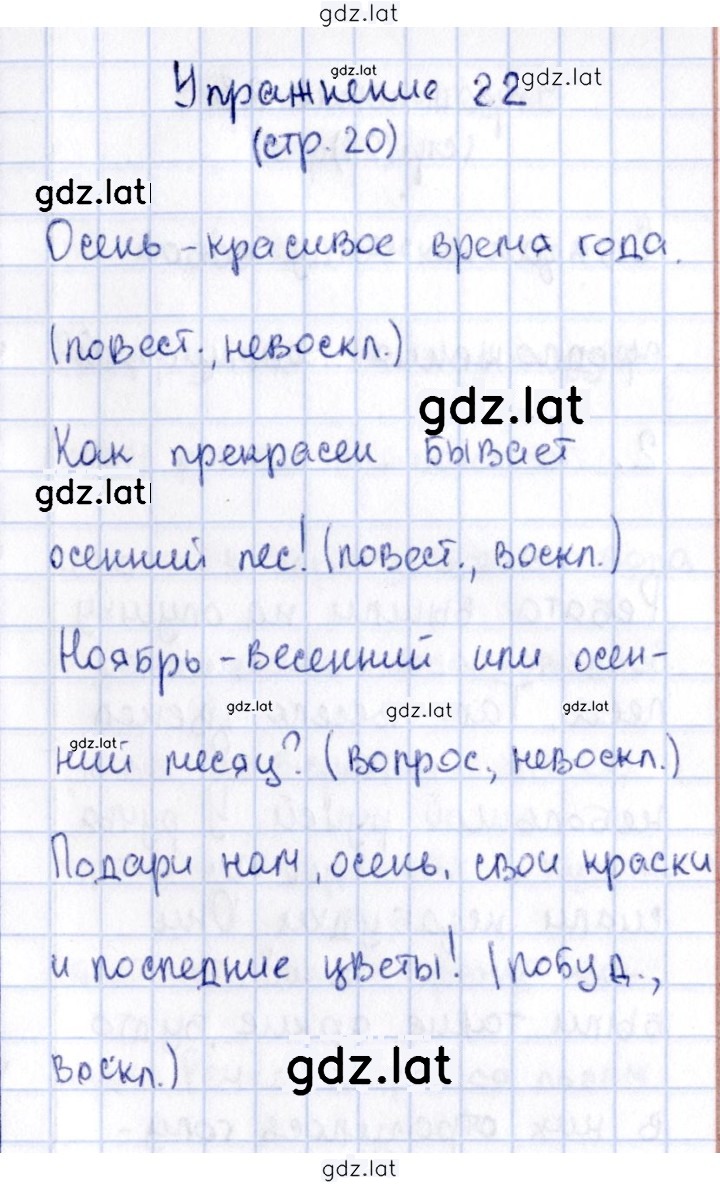 gdz.lat
gdz.lat
Упражнение 22 gdz.lat
(стр. 20)
gdz.lat
Осень - красивое время года.
(повест., невоскл.)
gdz.lat
Как прекрасен бывает
gdz.lat
осенний лес! (повест., воскл.)
Ноябрь - весенний или осен-
gdz.lat gdz.lat gdz.lat
gdz.lat
ний месяц? (вопрос., невоскл.)
Подари нам, осень, свои краски
и последние цветы! (побуд.,
воскл.) gdz.lat
gdz.lat